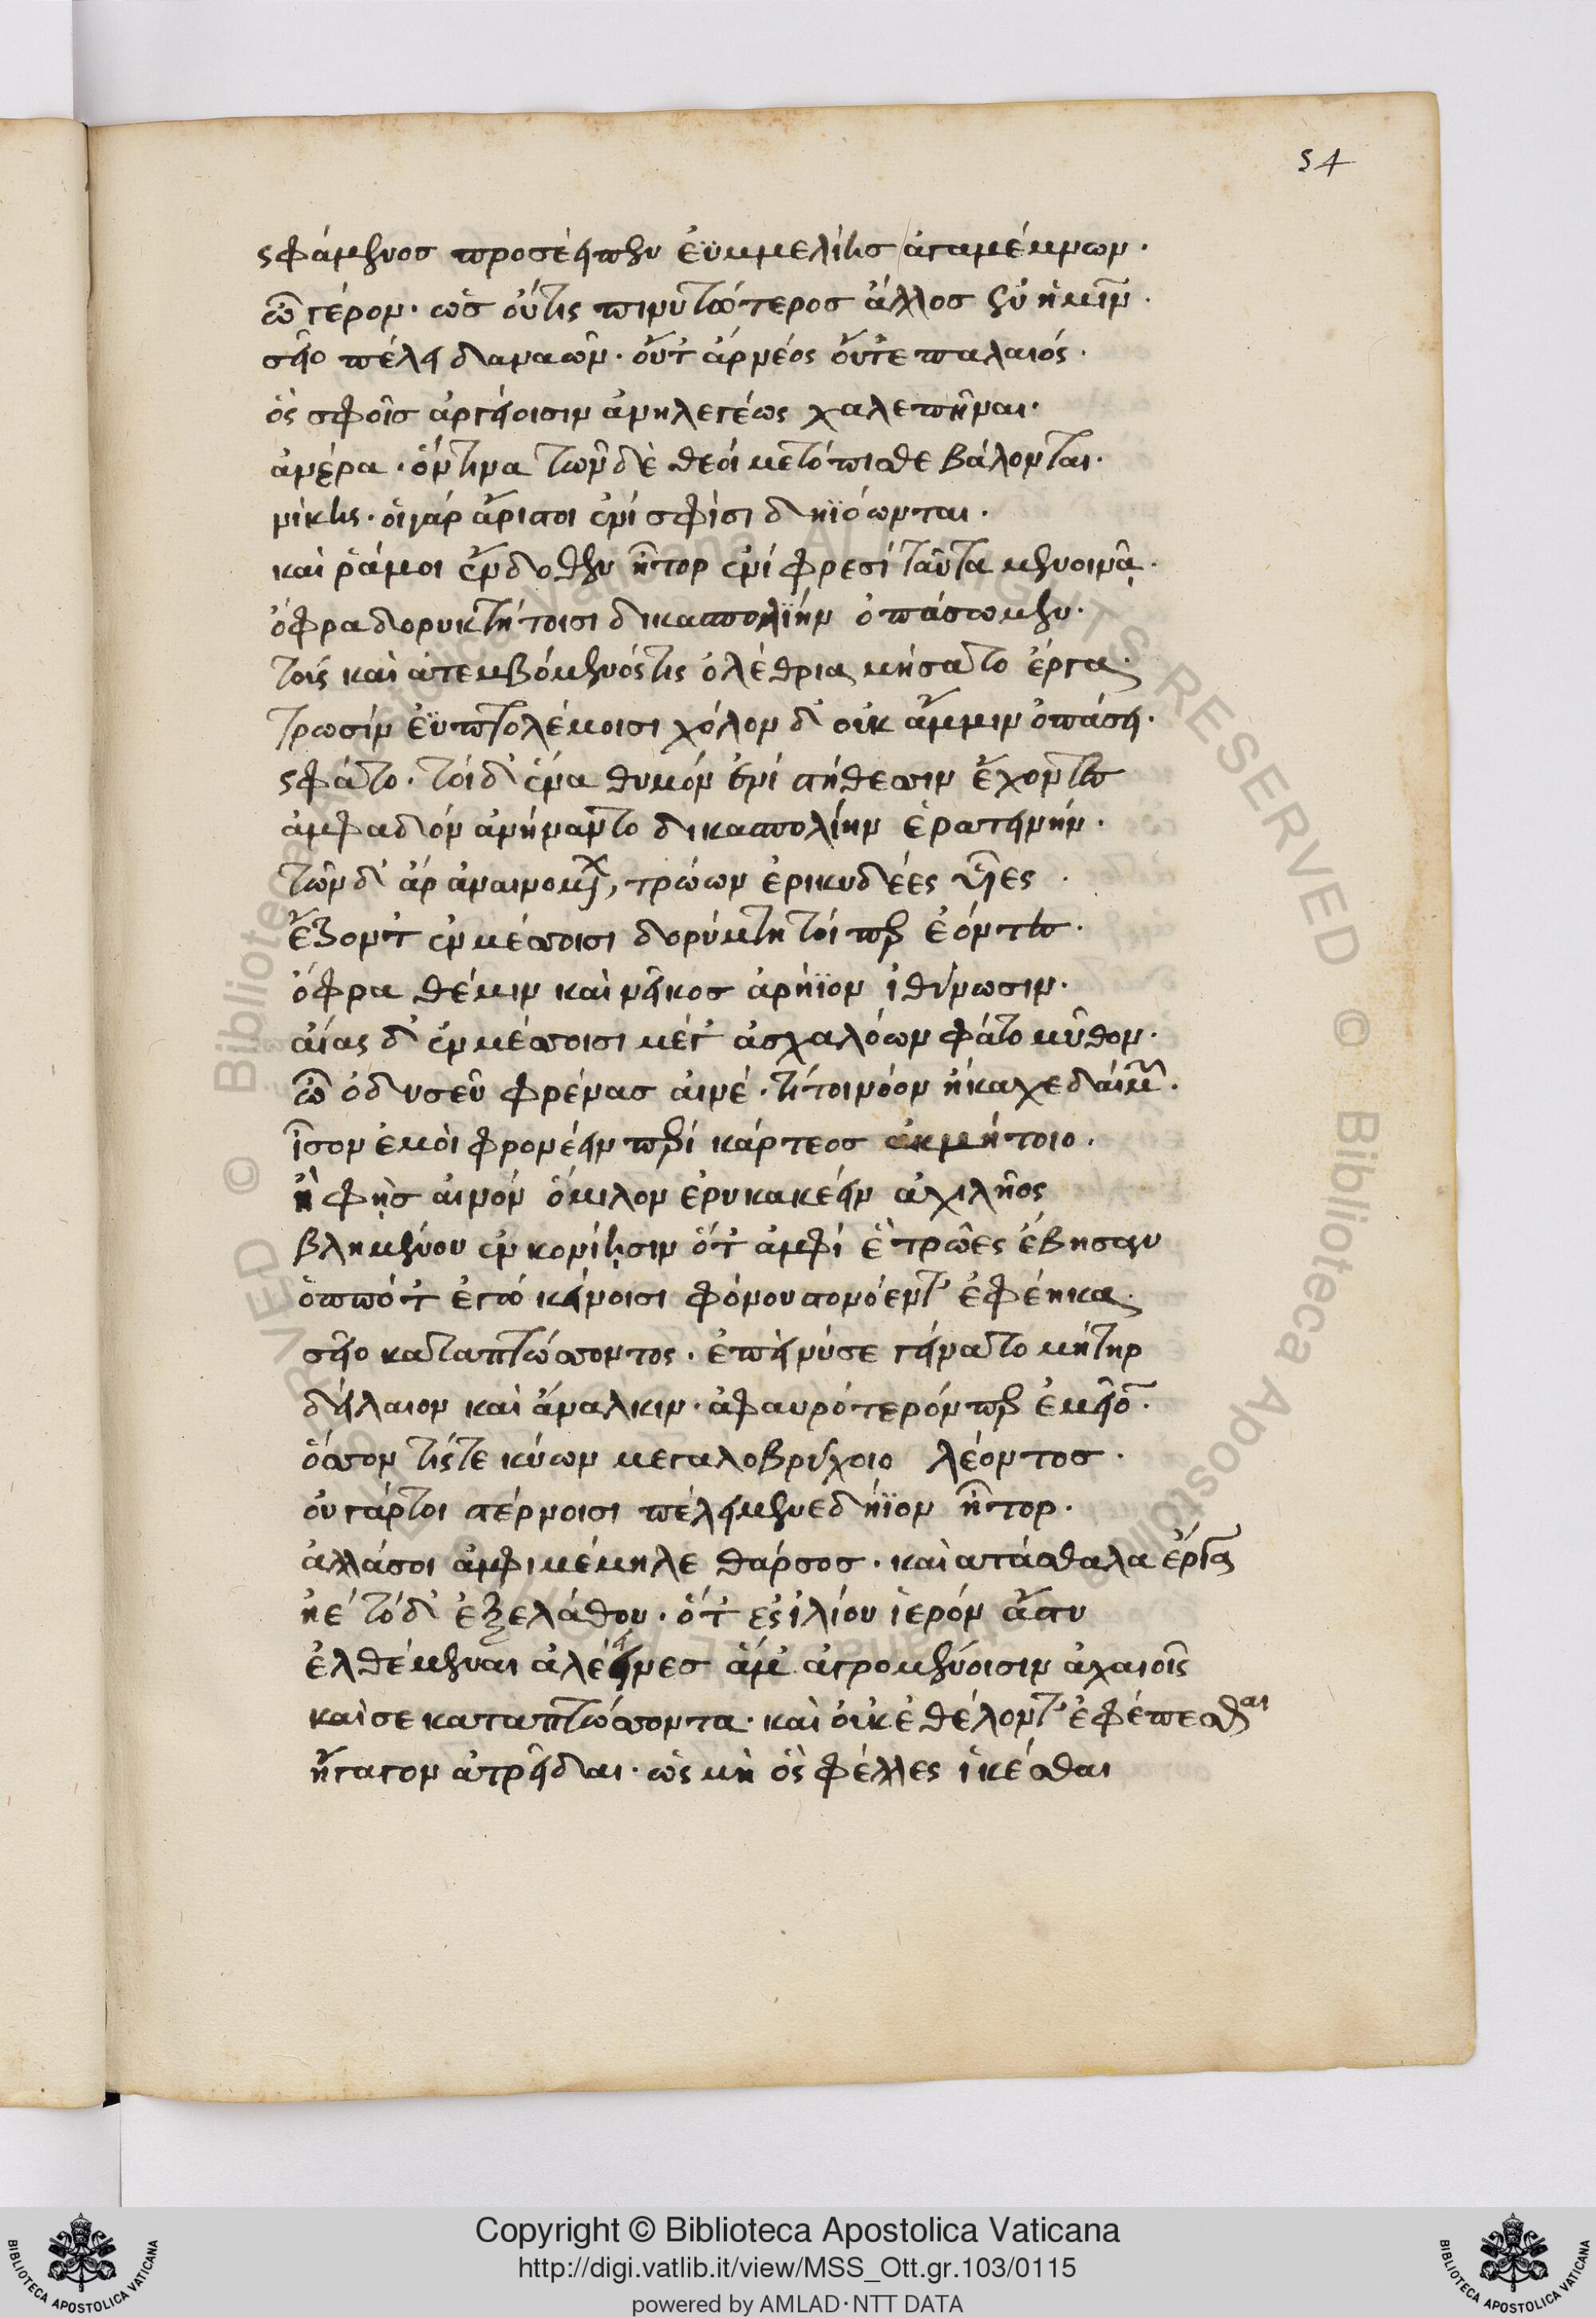 54
ς φάμενος προσέειπεν ἐϋμμελίης ἀγαμέμνων·
ὦ γέρον· ὡς οὔτις πινυτώτερος ἄλλος ἐν ἡμῖν·
σεῖο πέλει δαναῶν· οὔτ' ἀρνέος οὔτε παλαιός·
ὃς σφοῖσ ἀργείοισιν ἀνηλεγέως χαλεπῆναι·
ἀνέρα· ὅντινα τῶνδὲ θεοί μετόπισθε βάλονται·
νίκης· οἳγάρ ἄριστοι ἐνί σφίσι δηϊόωνται·
καί ῥάμοι ἔνδοθεν ἦτορ ἐνί φρεσί ταῦτα μενοινᾷ·
ὄφρα δορυκτήτοισι δικασπολίην ὀπάσωμεν·
τοῖς καὶ ἀτεμβόμενός τις ὀλέθρια μήσατο ἔργα·
τρωσίν ἐϋπτολέμοισι χόλον δ' οὐκ ἄμμιν ὀπάσει·
ς φάτο· τοί δ' ἕνα θυμόν ἐνί στήθεσσιν ἔχοντες
ἀμφαδόν ἀνήναντο δικασπολίην ἐρατεινήν·
τῶν δ' ἀρ ἀναινομένων, τρώων ἐρικυδέες υἷες·
ἕζοντ' ἐν μέσσοισι δορύκτητοί περ ἐόντες·
ὄφρα θέμιν καὶ νεῖκος ἀρήϊον ἰθύνωσιν·
αἴας δ' ἐν μέσσοισι μέγ' ἀσχαλόων φάτο μῦθον·
ὦ ὀδυσεῦ φρένας αἰνέ· τί τοι νόον ἤκαχε δαίμων·
ἶσον ἐμοὶ φρονέειν περί κάρτεος ἀκμήτοιο·
ἢ φῂς αἰνόν ὅμιλον ἐρυκακέειν ἀχιλῆος
βλημένου ἐν κονίῃσιν ὅτ' ἀμφί ἑ τρῶες ἔβησαν
ὁππότ' ἐγώ κείνοισι φόνου στονόεντ' ἐφέηκα·
σεῖο καταπτώσσοντος· ἐπεὶ νύ σε γείνατο μήτηρ
δείλαιον καὶ ἄναλκιν· ἀφαυρότερόν περ ἐμεῖο·
ὅσσον τίς τε κύων μεγαλοβρύχοιο λέοντος·
οὐ γάρ τοι στέρνοισι πέλει μενεδήϊον ἦτορ·
ἀλλά σοι ἀμφιμέμηλε θάρσος· καὶ ἀτάσθαλα ἔργα
ἠέ τόδ' ἐξελάθου· ὅτ' ἐς ἰλίου ἱερόν ἄστυ
ἐλθέμεναι ἀλέεινες ἅμ' ἀγρομένοισιν ἀχαιοῖς
καί σε καταπτώσσοντα· καὶ οὐκ ἐθέλοντ' ἐφέπεσθαι
ἤγαγον ἀτρεῖδαι· ὡς μὴ ὃς φέλλες ἱκέσθαι
Copyright © Biblioteca Apostolica Vaticana
http://digi.vatlib.it/view/MSS_Ott.gr.103/0115
powered by AMLAD·NTT DATA